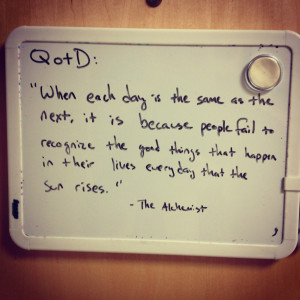 QotD:
"When each day is the same as the
next, it is because people fail to
recognize the good things that happen
in their lives everyday that the
sun rises."
- The Alchemist